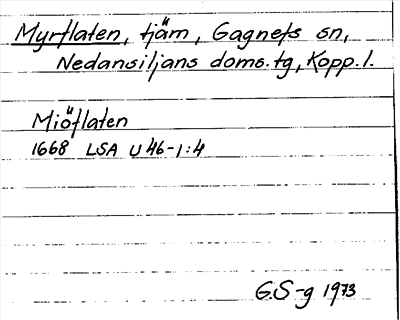 Myrflaten, tjärn, Gagnefs sn,
Nedansiljans doms.tg, Kopp.l.
Miöflaten
1668 LSA U 46-1:4
G.S-g 1973